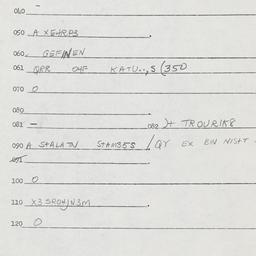 040 -
050 A XEHRP3.
060 GEFINEN
061 QRR OHF KATU..,S (350
070 O
080
081 - 082 )+ TROURIK8
090 A STALATN STAM3ES / QY EX EIN NISHT
091
100 O
110 X3 SROHJN3M.
120 O